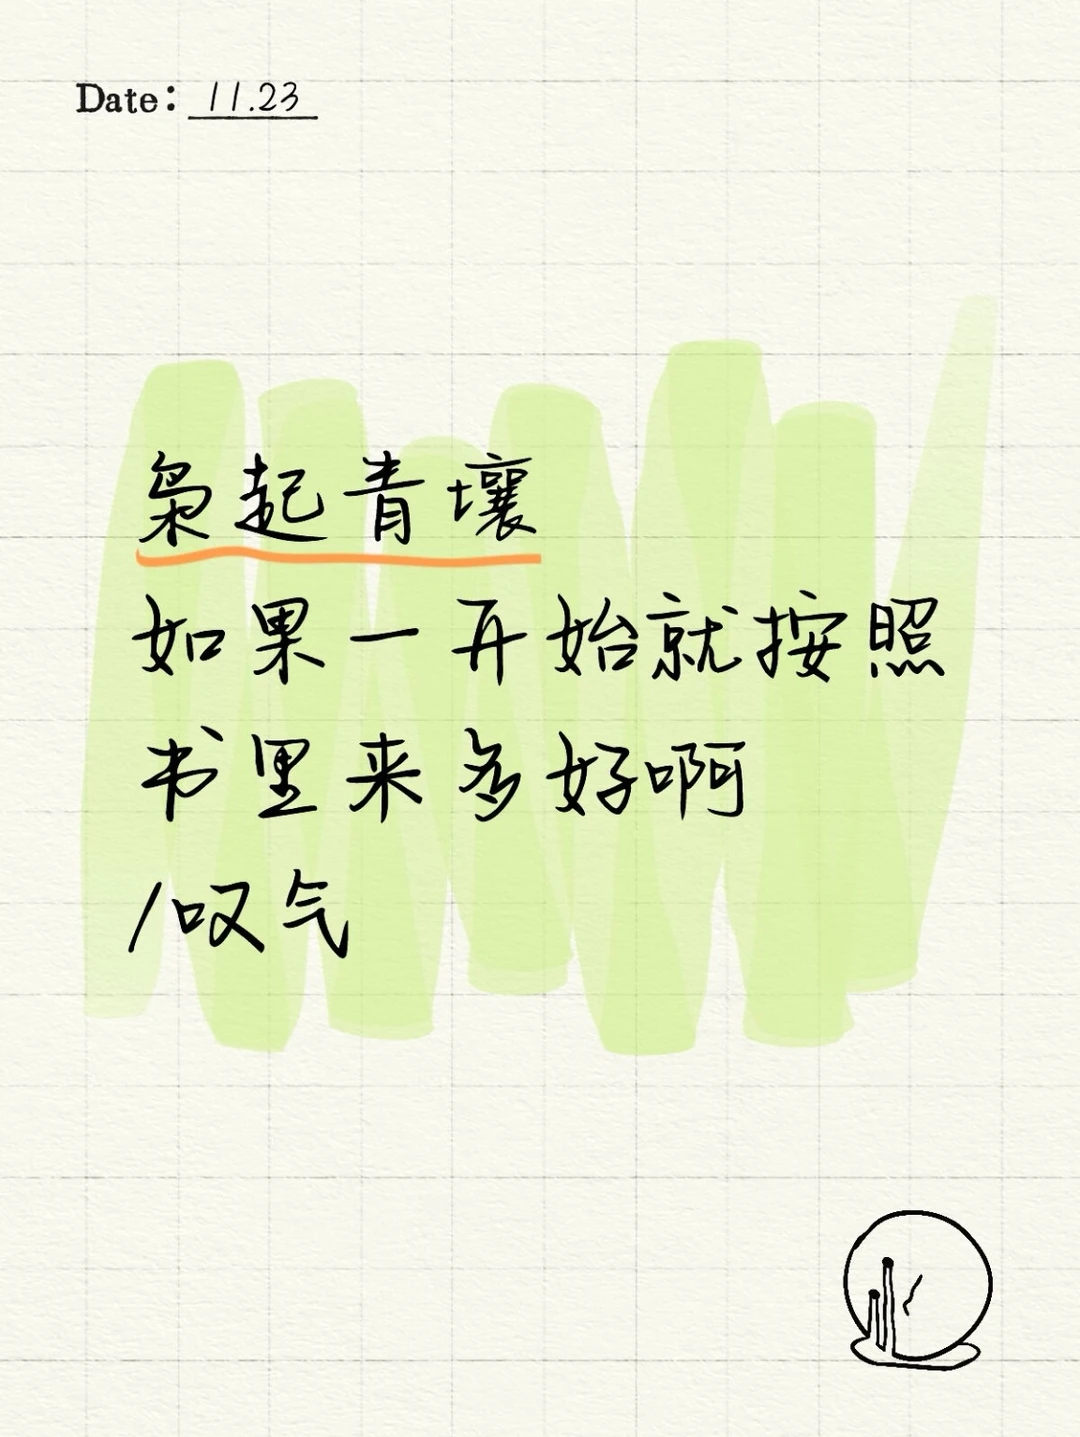 Date: 11.23
枭起青壤
如果一开始就按照
书里来多好啊
/叹气